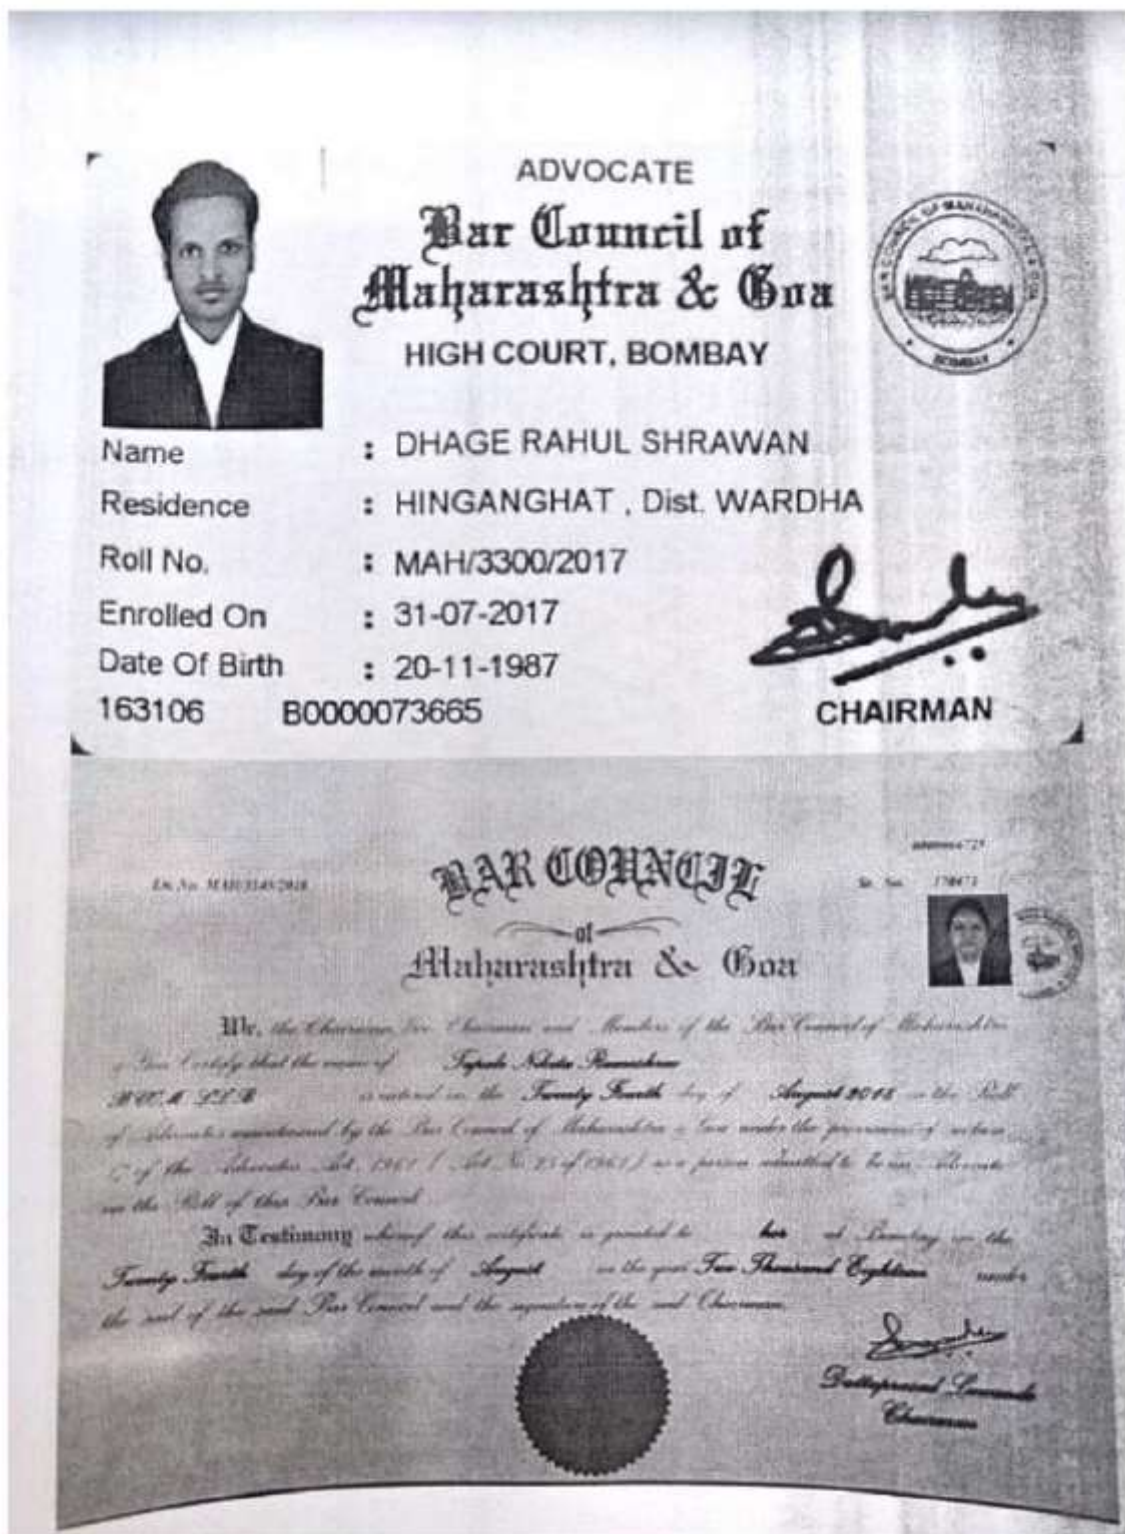 ADVOCATE
Bar Council of
Maharashtra & Goa
HIGH COURT, BOMBAY
BOMBAY
Name : DHAGE RAHUL SHRAWAN
Residence : HINGANGHAT , Dist. WARDHA
Roll No. : MAH/3300/2017
Enrolled On : 31-07-2017
Date Of Birth : 20-11-1987
163106 B0000073665
CHAIRMAN
BAR COUNCIL
of
Maharashtra & Goa
We, the Chairman, Chairman and Members of the Bar Council of Maharashtra
Certify that the name of
is entered on the Twenty Fourth day of August 2018 on the Roll
of Advocates maintained by the Bar Council of Maharashtra & Goa under the provisions of section
17 of the Advocates Act, 1961 ( Act No 25 of 1961 ) as a person admitted to be an Advocate
on the Roll of this Bar Council.
In Testimony whereof this certificate is granted to her at Bombay on the
Twenty Fourth day of the month of August in the year Two Thousand Eighteen under
the seal of the said Bar Council and the signature of the said Chairman.
Chairman